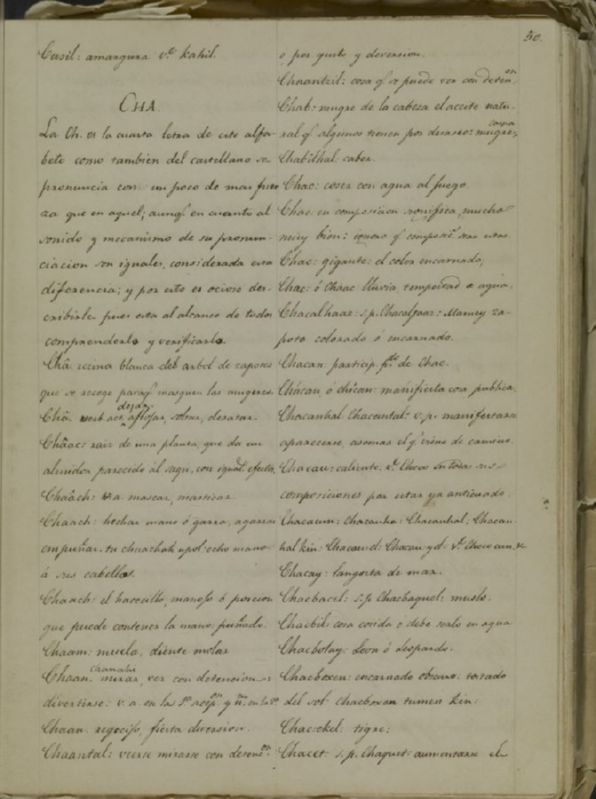 50.
Cusil: amargura v.e kahil.
CHA
La Ch. es la cuarta letra de este alfa-
beto como tambien del castellano se
pronuncia con un poco de mas fuer
za que en aquel; aunq.e en cuanto al
sonido y mecanismo de su pronun-
ciacion son iguales, considerada esta
diferencia; y por esto es ocioso des-
cribirla pues esta al alcance de todos
comprenderla y verificarla.
Châ resina blanca del arbol de zapote
que se recoge para q.e masquen las mugeres.
Châ. dejar, aflojar, soltar, desatar.
Chaac: raiz de una planta, que da un
almidon parecido al sagu, con igual efecto.
Chaach: v.a. mascar, masticar.
Chaach: hechar mano ó garra, agarrar
empuñar. tu chaachah upol: echo mano
á sus cabellos.
Chaach: el manojo ó porcion
que puede contener la mano: puñado.
Chaam: muela, diente molar
Chaan. mirar, ver con detencion
divertirse: v. a. en la
Chaan regocijo, fiesta diversion.
Chaantal: verse mirarse con deten.on
o por gusto y diversion.
Chaantzil: cosa q.e se puede ver con deten.on
Chab: mugre de la cabeza el aceite natu-
ral q.e algunos tienen por desaseo: mugre, caspa
caber.
Chac: coser con agua al fuego.
Chac: en composicion significa, mucho
muy bien:
Chac: gigante: el color encarnado,
Chac: ó Chaac lluvia, tempestad o agua.
Chacalhaaz: s.p. Mamey za-
pote colorado ó encarnado.
Chacan. particip. de Chac.
Chácan ó chican: manifiesta cosa publica.
Chacanhal Chacantal: v.p. manifestarse
aparecerse, asomar el q.e viene de camino.
Chacau: caliente. v.e Choco en todas sus
composiciones por estar ya anticuado.
Chacay: langosta de mar.
Chacbacel: s.p. Chacbaquel: muslo.
Chacbil: cosa cosida o debe serlo en agua
Chacbolay: Leon ó leopardo.
Chacboxen: encarnado obscuro: tostado
del sol chacboxen tumen kin:
Chacekel: tigre:
Chacet. s.p. Chaquet: aumentarse el